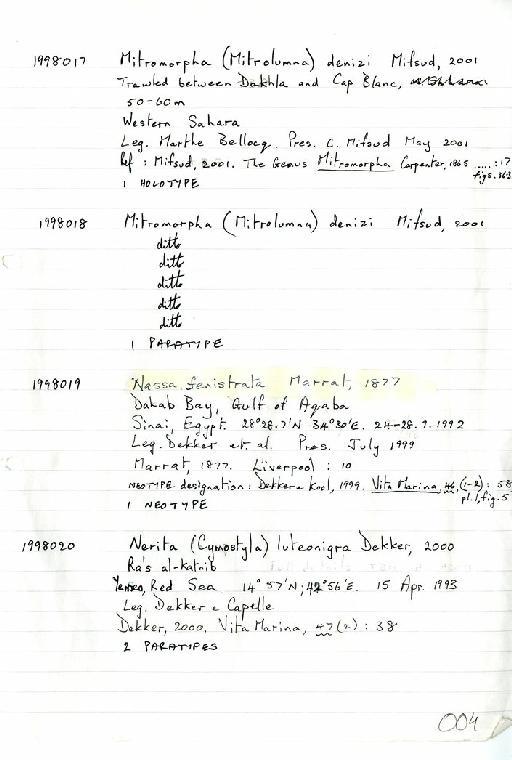 1998017 Mitromorpha (Mitrolumna) denizi Mifsud, 2001
Trawled between Dakhla and Cap Blanc,
50-60m
Western Sahara
Leg. Marthe Bellocq. Pres. C. Mifsud May 2001
Ref : Mifsud, 2001. The Genus Mitromorpha Carpenter, 1865 ....:17
figs.
1 HOLOTYPE
1998018 Mitromorpha (Mitrolumna) denizi Mifsud, 2001
ditto
ditto
ditto
ditto
ditto
1 PARATYPE
1998019 Nassa fenistrata Marrat, 1877
Dahab Bay, Gulf of Aqaba
Sinai, Egypt. 28°28.7'N 34°30'E. 24-28.9.1992
Leg. Dekker et. al. Pres. July 1999
Marrat, 1877. Liverpool : 10
NEOTYPE designation: Dekker & Kool, 1999. Vita Marina, 46, (1-2) : 58
pl.1, fig.5
1 NEOTYPE
1998020 Nerita (Cymostyla) luteonigra Dekker, 2000
Ra's al-Katnib
Yemen, Red Sea 14°57'N; 42°56'E. 15 Apr. 1993
Leg. Dekker & Capelle
Dekker, 2000. Vita Marina, 47(2) : 38
2 PARATYPES
004